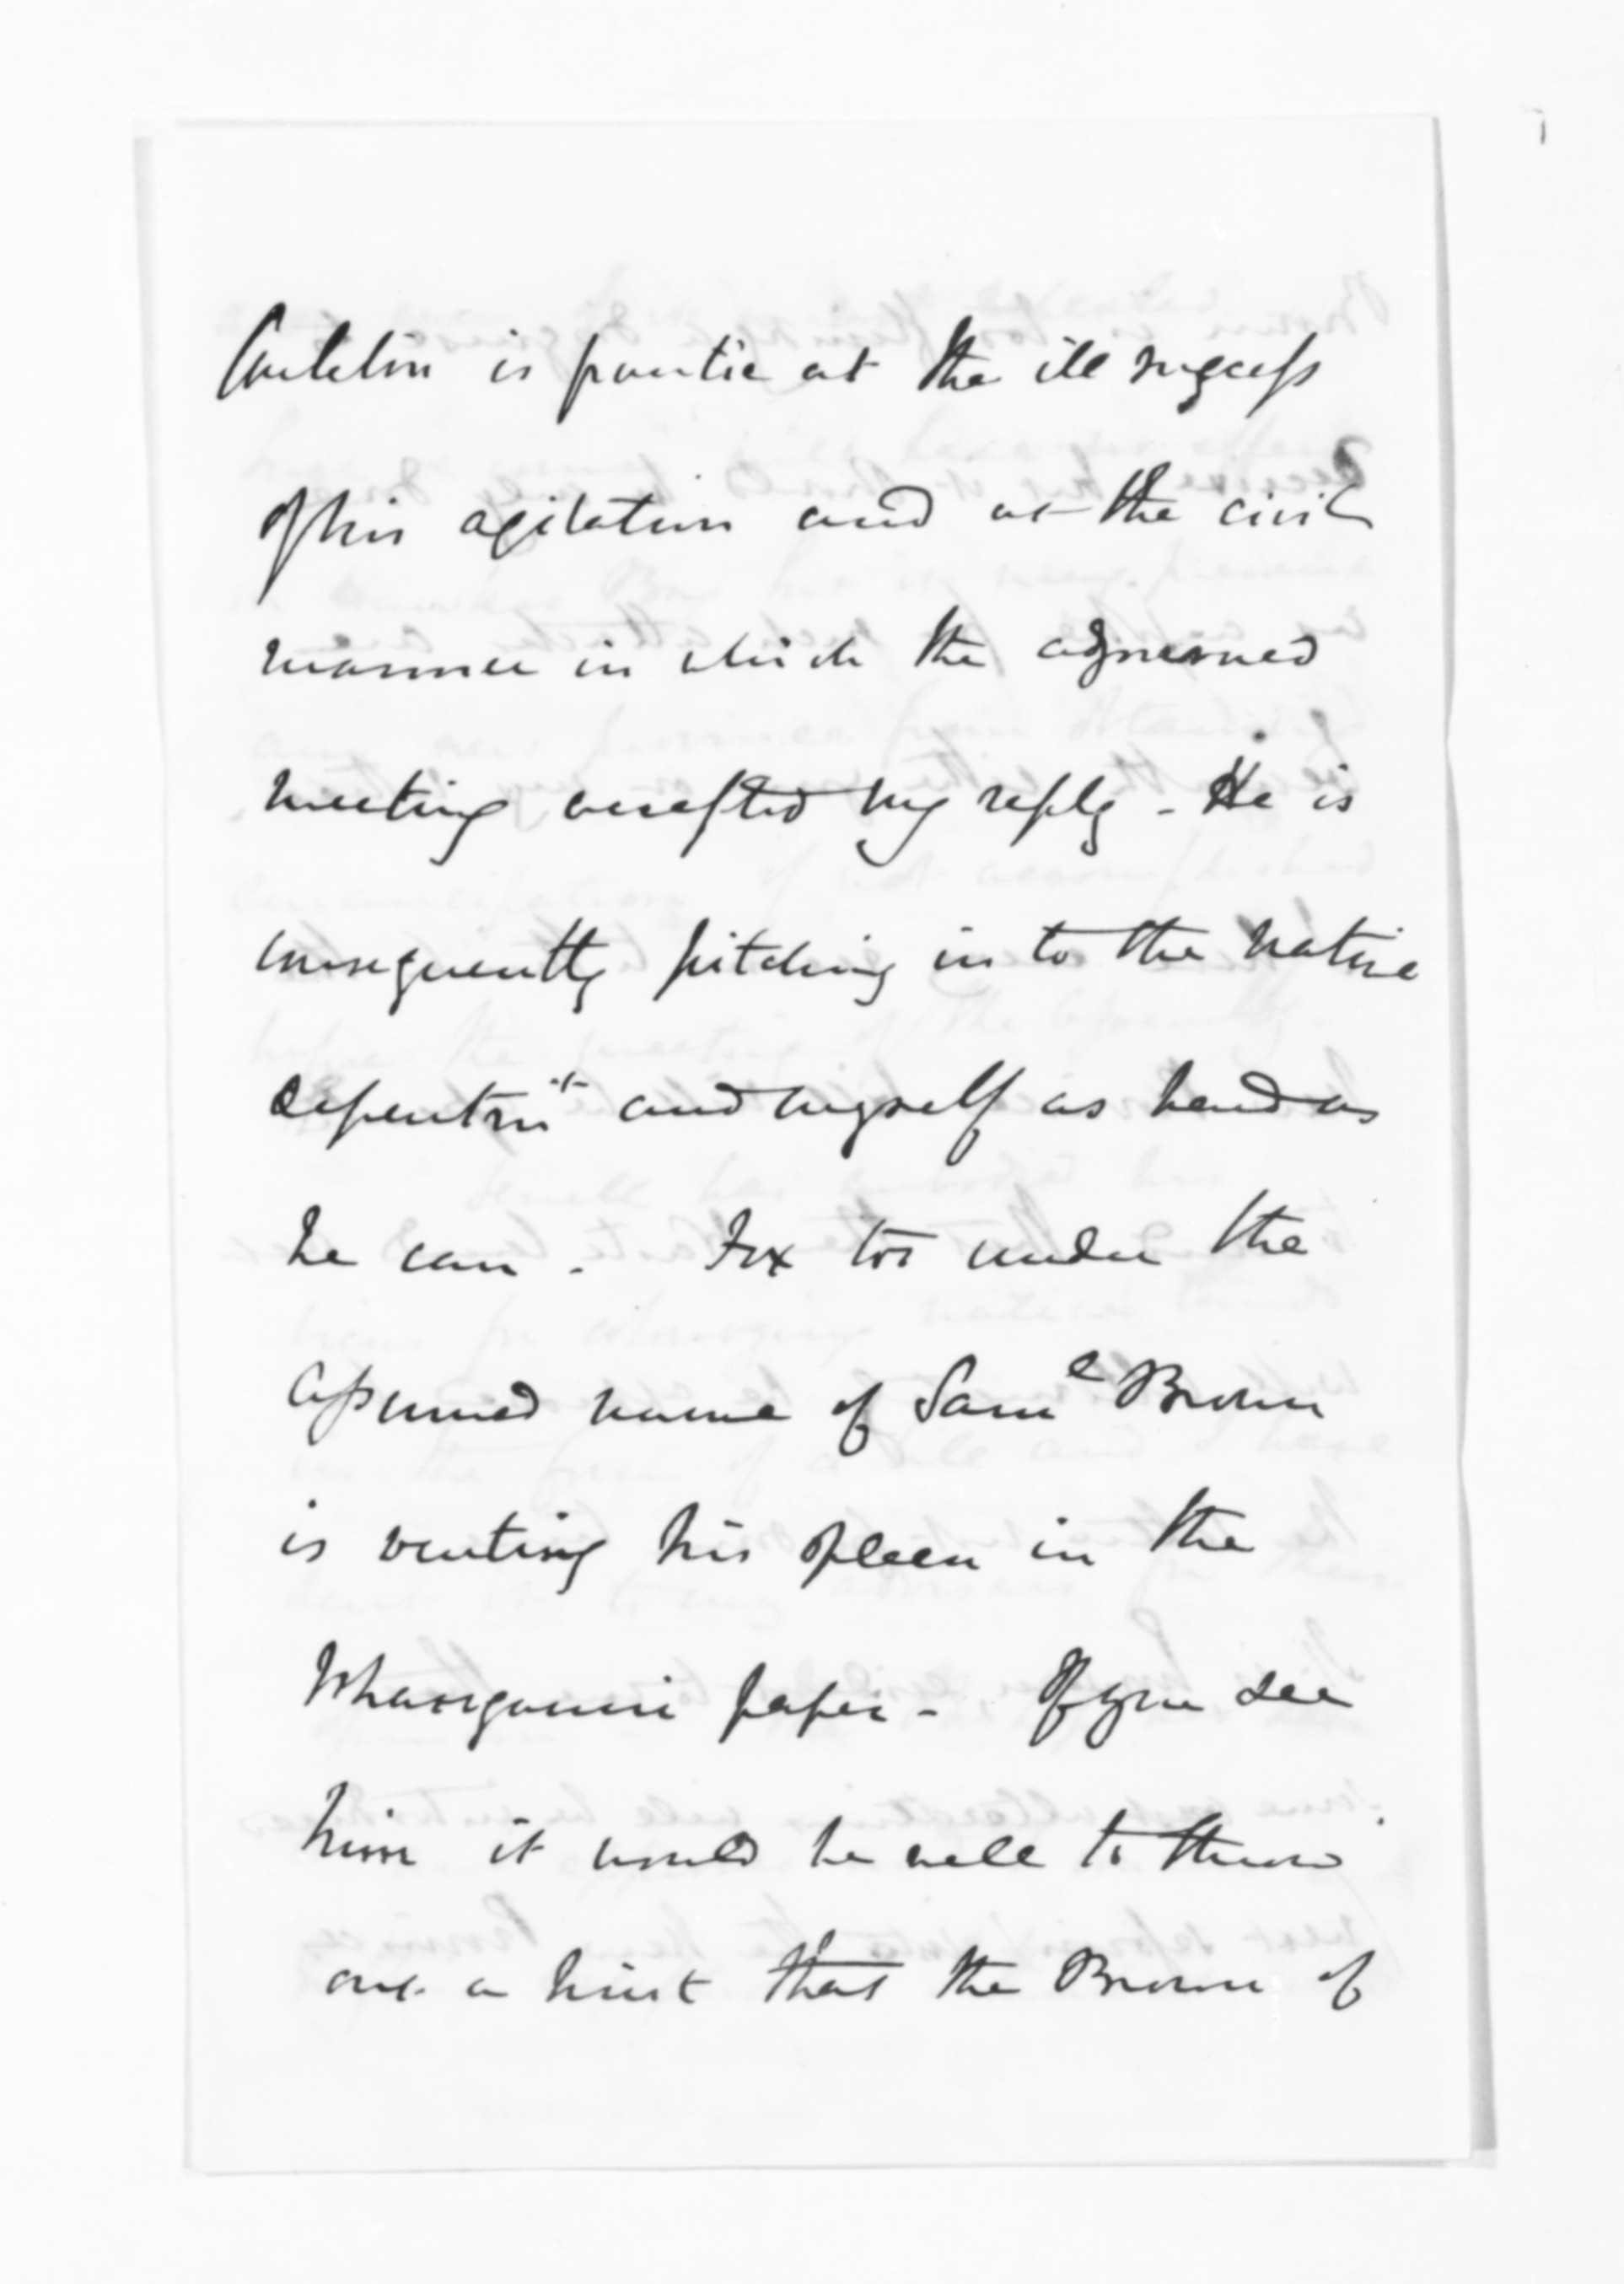 Carleton is frantic at the ill success
of his agitation and at the civil
manner in which the adjourned
meeting accepted my reply - He is
consequently pitching in to the native
departmt and myself as hard as
he can - Fox too under the
assumed name of Saml Brown
is venting his spleen in the
Whanganui paper - If you see
him it would be well to throw
out a hint that the Brown of